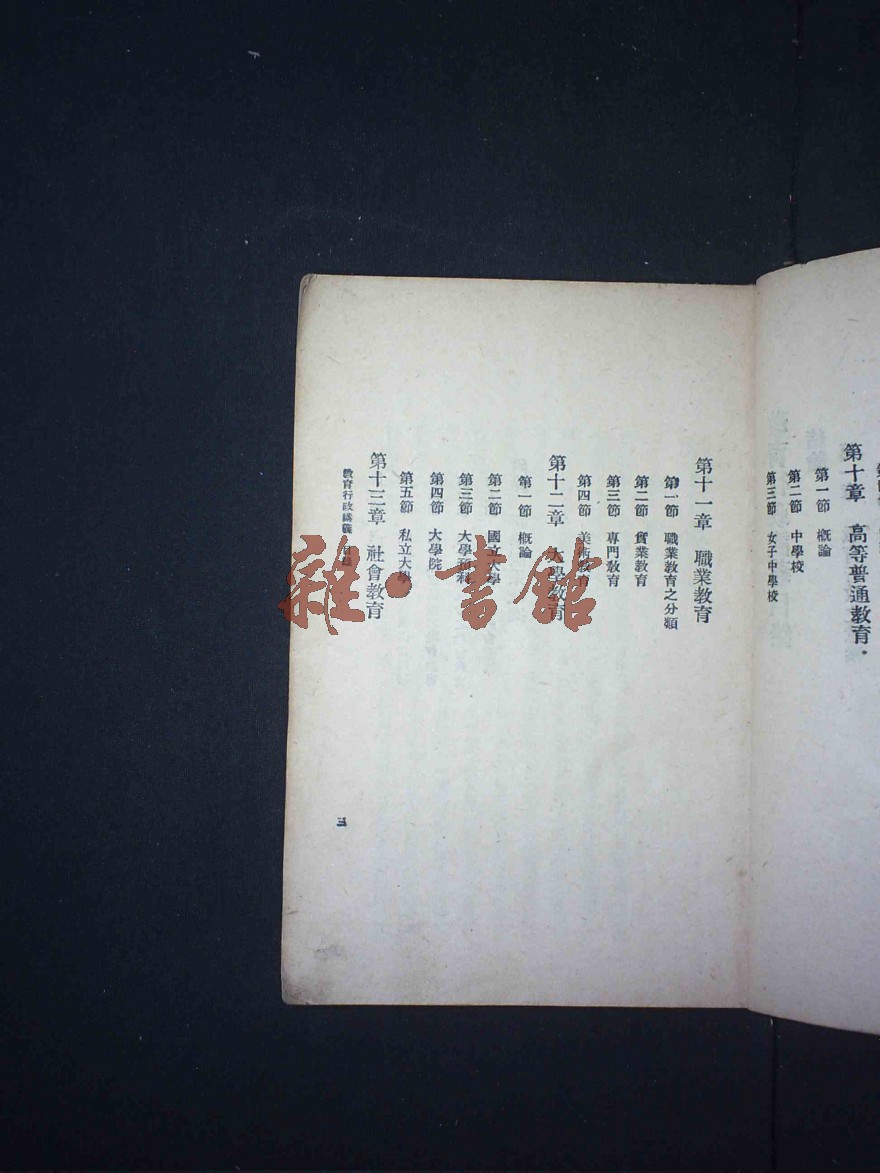 第十章　高等普通教育
第一節　概論
第二節　中學校
第三節　女子中學校
第十一章　職業教育
第一節　職業教育之分類
第二節　實業教育
第三節　專門教育
第四節　美術教育
第十二章　大學教育
第一節　概論
第二節　國立大學
第三節　大學預科
第四節　大學院
第五節　私立大學
第十三章　社會教育
教育行政講義　目錄
三
雜·書館